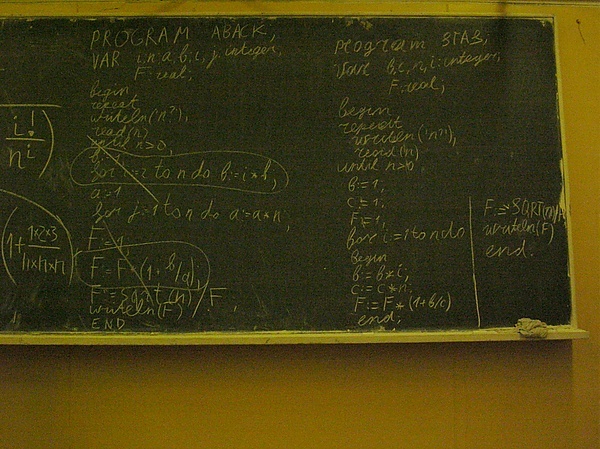 i!
n^i
1+ 1×2×3
n×n×n
PROGRAM ABACK;
VAR i,n,a,b,i,j:integer;
F:real;
begin
repeat
writeln('n?');
read(n)
until n>0;
for i:=1 to n do b:=i*b;
a:=1
for j:=1 to n do a:=a*n;
F:=1;
F:=F*(1+b/a);
F:=sqrt(n)/F;
writeln(F)
END
program STAS;
var b,c,n,i:integer;
F:real;
begin
repeat
writeln('n?');
read(n)
until n>0
b:=1;
c:=1;
F:=1;
for i:=1 to n do
begin
b:=b*i;
c:=c*n;
F:=F*(1+b/c)
end;
F:=SQRT(n)/F
writeln(F)
end.